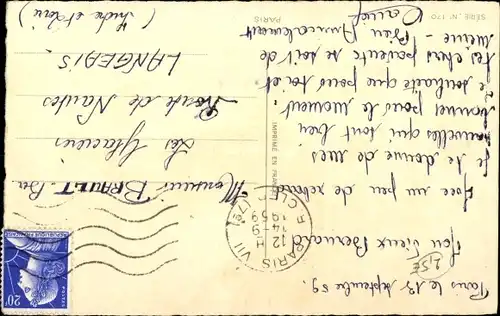 Paris le 13 septembre 59.
Mon vieux Bernard
Avec un peu de retard
je te donne de mes
nouvelles qui sont bien
bonnes pour le moment
Je souhaite que pour toi et
tes chers parents ce soit de
même - Bien Amicalement
Daniel
Monsieur BRAULT Ber
Les Glacier
Route de Nantes
LANGEAIS.
(Indre et Loire)
SERIE N° 170
PARIS
IMPRIME EN FRANCE
PARIS VII
12 H
14-9
1959
R. CLER (7e)
20F
POSTES